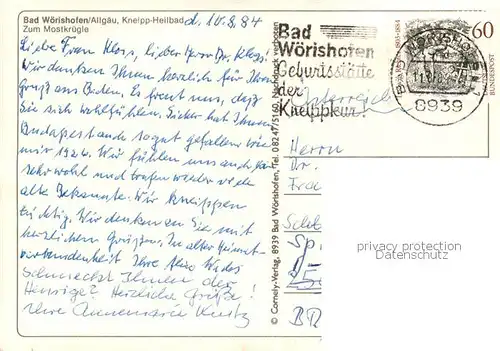 Bad Wörishofen/Allgäu, Kneipp-Heilbad
Zum Mostkrügle
d. 10.8.84
Liebe Frau Kloss, lieber Herr Dr. Kloss!
Wir danken Ihnen herzlich für Ihren
Gruß aus Baden. Es freut uns, daß
Sie sich wohlfühlen. Sicher hat Ihnen
Budapest auch so gut gefallen wie
mir 1926. Wir fühlen uns auch ganz
sehr wohl und trafen wieder viele
alte Bekannte. Wir kneippen
tüchtig. Wir denken an Sie mit
herzlichen Grüßen. In alter Heimat-
verbundenheit Ihre
Schmeckt Ihnen der
Heurige? Herzliche Grüße!
Ihre Annemarie
© Cornely-Verlag, 8939 Bad Wörishofen, Tel. 08247/5160, Nachdruck verboten
Bad
Wörishofen
Geburtsstätte
der
Kneippkur
60
8939
Österreich
Herrn
Dr.
privacy protection
Datenschutz